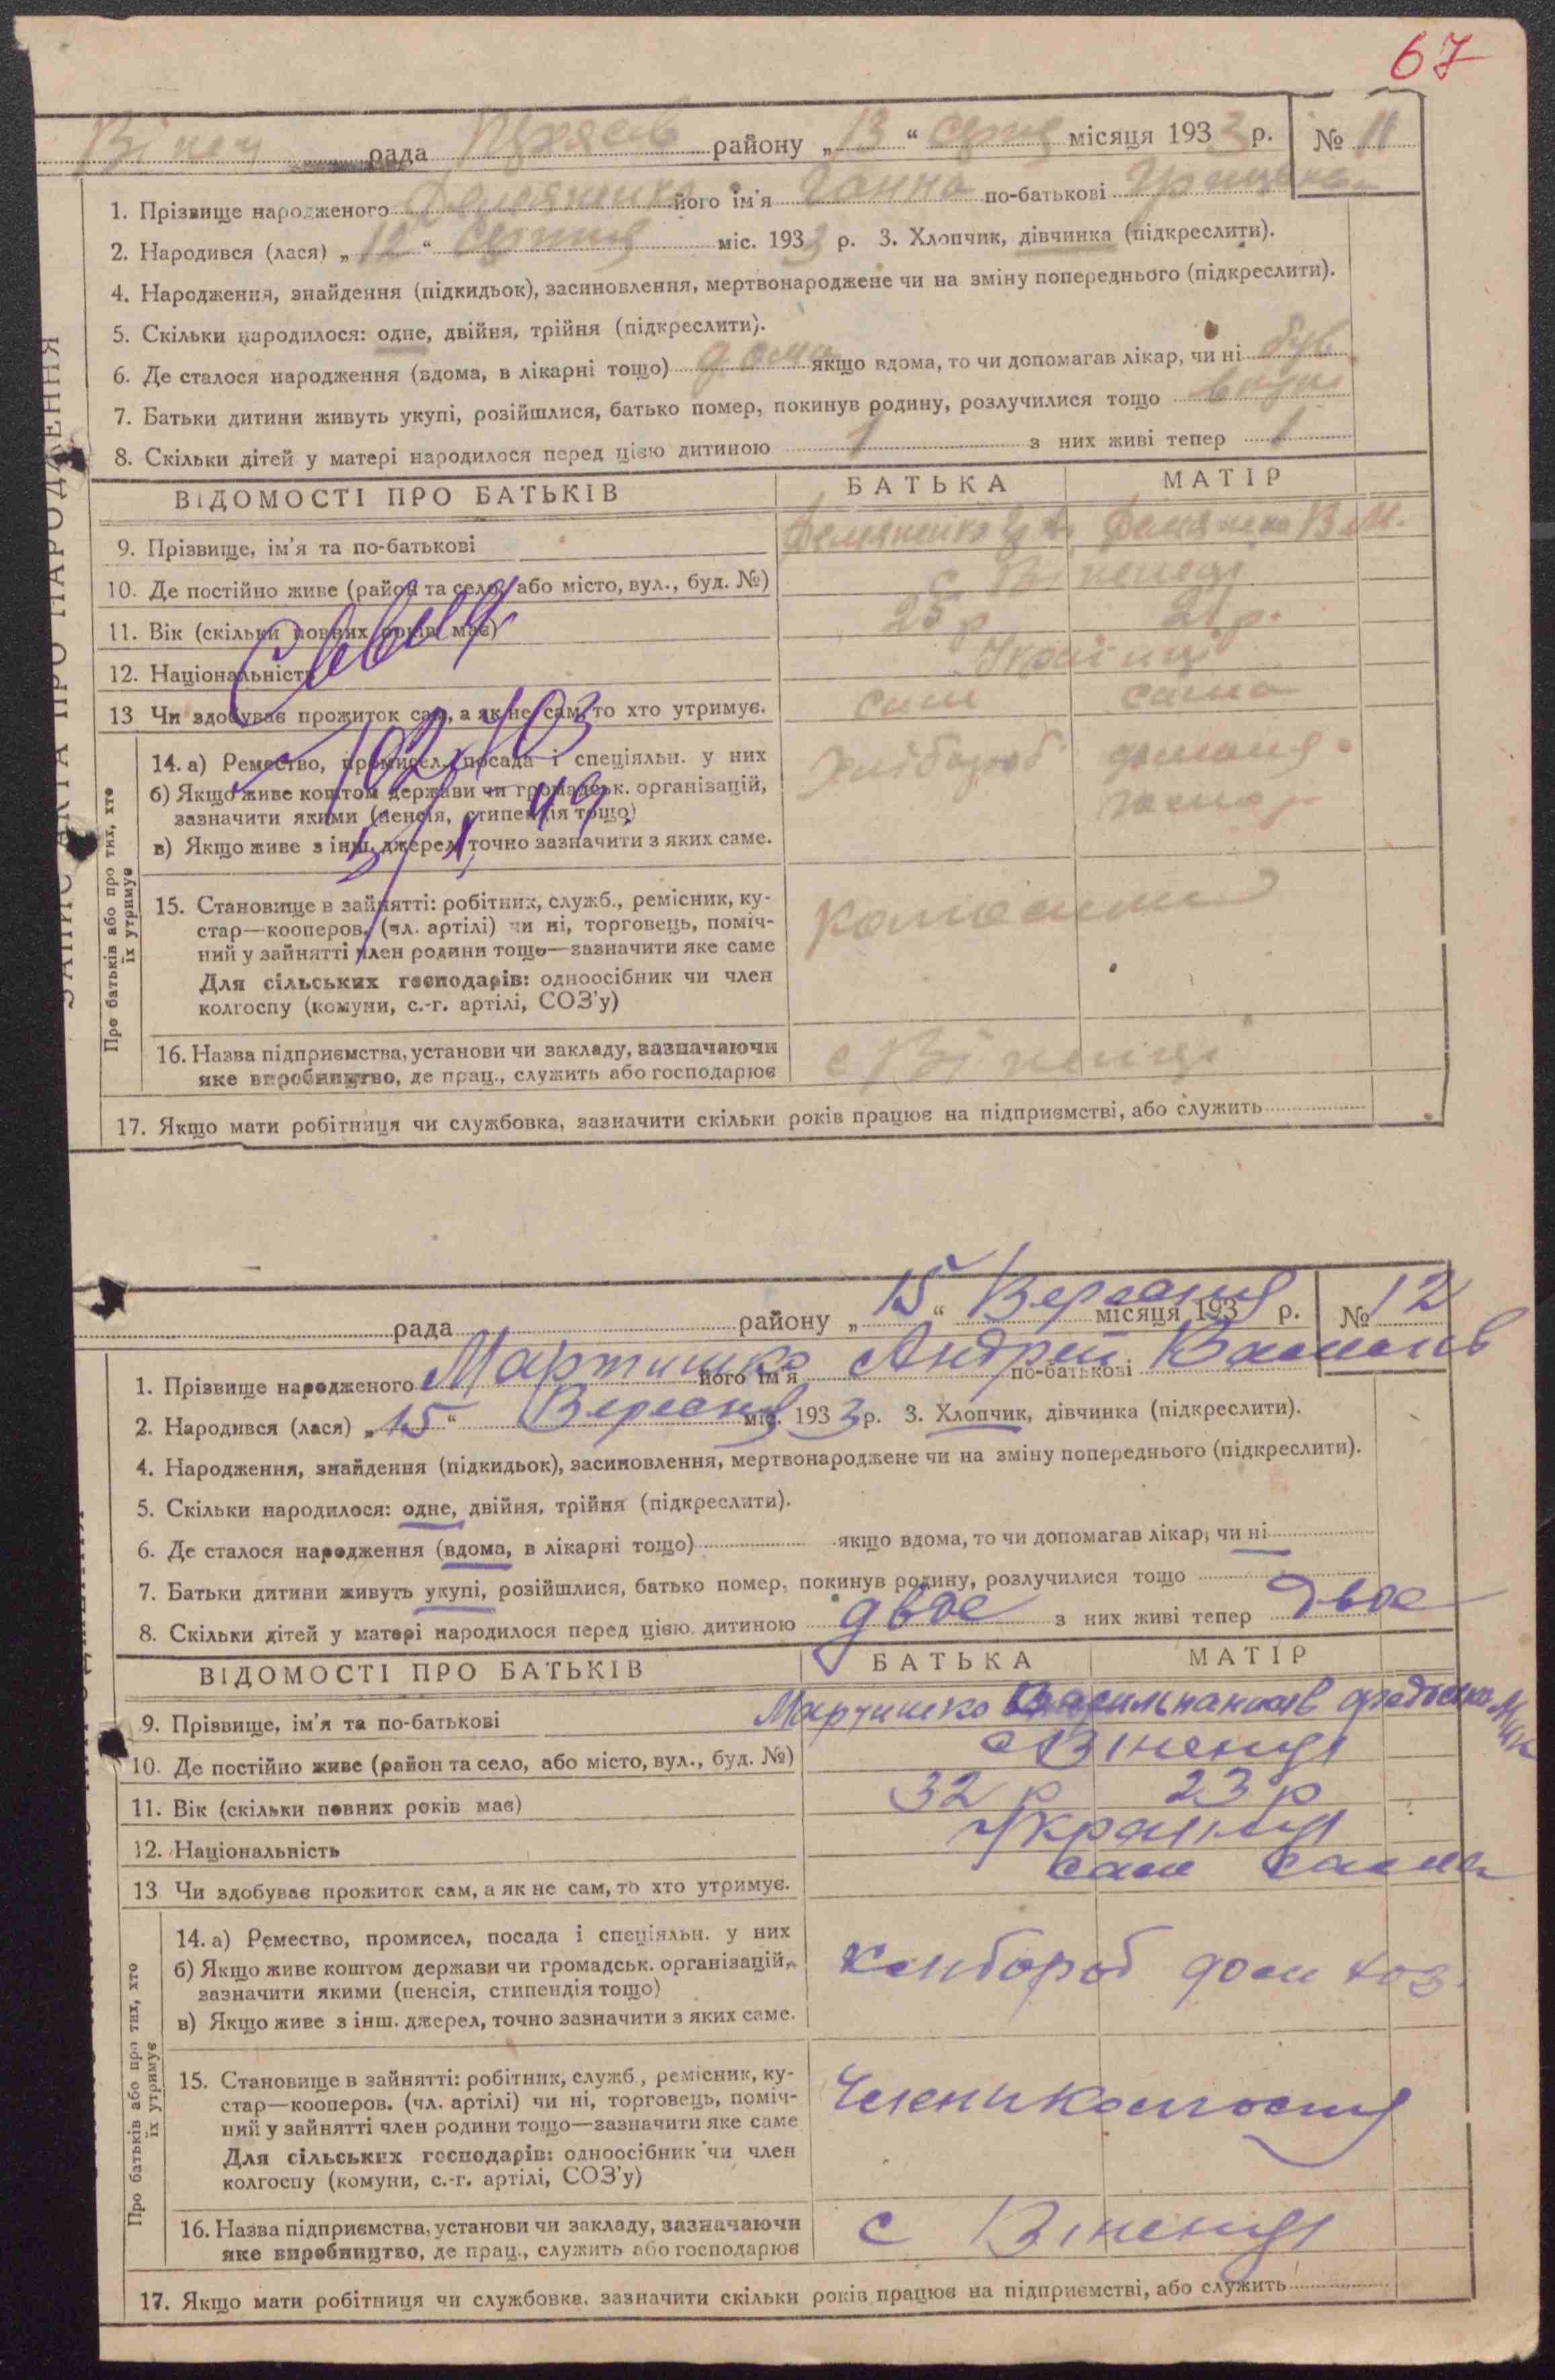 67
рада району „13“ серпня місяця 1933 р. № 11
1. Прізвище народженого Демяненко його ім'я Ганна по-батькові
2. Народився (лася) „12“ серпня міс. 1933 р. 3. Хлопчик, дівчинка (підкреслити).
4. Народження, знайдення (підкидьок), засиновлення, мертвонароджене чи на зміну попереднього (підкреслити).
5. Скільки народилося: одне, двійня, трійня (підкреслити).
6. Де сталося народження (вдома, в лікарні тощо) дома якщо вдома, то чи допомагав лікар, чи ні був
7. Батьки дитини живуть укупі, розійшлися, батько помер, покинув родину, розлучилися тощо вкупі
8. Скільки дітей у матері народилося перед цією дитиною 1 з них живі тепер 1
ВІДОМОСТІ ПРО БАТЬКІВ БАТЬКА МАТІР
9. Прізвище, ім'я та по-батькові Демяненко Демяненко В М.
10. Де постійно живе (район та село, або місто, вул., буд. №) с Віненці
11. Вік (скільки повних років має) 25 р 21 р.
12. Національність Українці
13 Чи здобуває прожиток сам, а як не сам, то хто утримує. сам сама
14. а) Ремество, промисел, посада і спеціяльн. у них Хлібороб домаш
б) Якщо живе коштом держави чи громадськ. організацій,
зазначити якими (пенсія, стипендія тощо)
в) Якщо живе з інш. джерел, точно зазначити з яких саме.
15. Становище в зайнятті: робітник, служб., ремісник, ку-
стар—кооперов. (чл. артілі) чи ні, торговець, поміч-
ний у зайнятті член родини тощо—зазначити яке саме
Для сільських господарів: одноосібник чи член
колгоспу (комуни, с.-г. артілі, СОЗ'у)
16. Назва підприємства, установи чи закладу, зазначаючи
яке виробництво, де прац., служить або господарює с Віненці
17. Якщо мати робітниця чи службовка, зазначити скільки років працює на підприємстві, або служить
Про батьків або про тих, хто
їх утримує
рада району „15“ Вересня місяця 193 р. № 12
1. Прізвище народженого Мартишко його ім'я Андрей по-батькові Васильов
2. Народився (лася) „15“ Вересня міс. 1933 р. 3. Хлопчик, дівчинка (підкреслити).
4. Народження, знайдення (підкидьок), засиновлення, мертвонароджене чи на зміну попереднього (підкреслити).
5. Скільки народилося: одне, двійня, трійня (підкреслити).
6. Де сталося народження (вдома, в лікарні тощо) якщо вдома, то чи допомагав лікар, чи ні
7. Батьки дитини живуть укупі, розійшлися, батько помер, покинув родину, розлучилися тощо
8. Скільки дітей у матері народилося перед цією дитиною двое з них живі тепер двое
ВІДОМОСТІ ПРО БАТЬКІВ БАТЬКА МАТІР
9. Прізвище, ім'я та по-батькові Мартишко
10. Де постійно живе (район та село, або місто, вул., буд. №) с Віненці
11. Вік (скільки повних років має) 32 р 23 р
12. Національність Українці
13 Чи здобуває прожиток сам, а як не сам, то хто утримує. сам сама
14. а) Ремество, промисел, посада і спеціяльн. у них
б) Якщо живе коштом держави чи громадськ. організацій, хлібороб дом хоз.
зазначити якими (пенсія, стипендія тощо)
в) Якщо живе з інш. джерел, точно зазначити з яких саме.
15. Становище в зайнятті: робітник, служб., ремісник, ку-
стар—кооперов. (чл. артілі) чи ні, торговець, поміч- Члени колгоспу
ний у зайнятті член родини тощо—зазначити яке саме
Для сільських господарів: одноосібник чи член
колгоспу (комуни, с.-г. артілі, СОЗ'у)
16. Назва підприємства, установи чи закладу, зазначаючи с Віненці
яке виробництво, де прац., служить або господарює
17. Якщо мати робітниця чи службовка, зазначити скільки років працює на підприємстві, або служить
Про батьків або про тих, хто
їх утримує